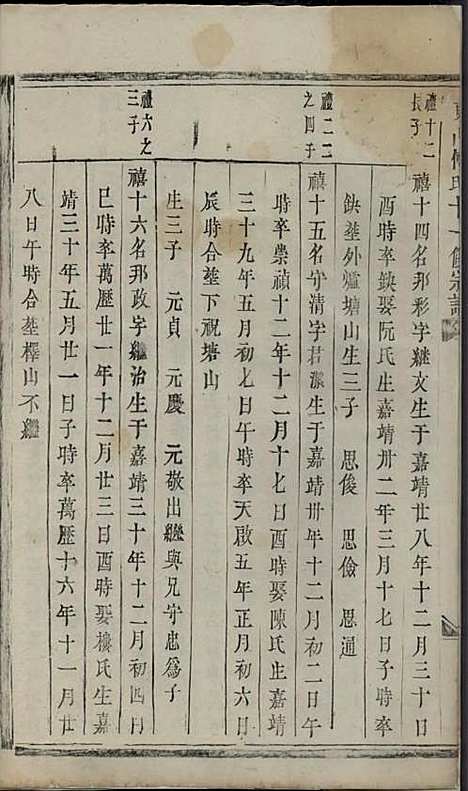 禮十二
長子
禧十四名邦彩字継文生于嘉靖廿八年十二月三十日
酉時卒缺娶阮氏生嘉靖卅二年三月十七日子時卒
缺塟外爐塘山生三子 思俊 思儉 思通
禮二二
之四子
禧十五名守清字君潔生于嘉靖卅年十二月初二日午
時卒崇禎十二年十二月十七日酉時娶陳氏生嘉靖
三十九年五月初七日午時卒天啟五年正月初六日
辰時合塟下祝塘山
生三子 元貞 元慶 元敬出繼與兄守忠為子
禮六之
三子
禧十六名邦政字繼治生于嘉靖三十年十二月初四日
巳時卒萬歷廿一年十二月廿三日酉時娶樓氏生嘉
靖三十年五月廿一日子時卒萬歷十六年十一月廿
八日午時合塟檡山不繼